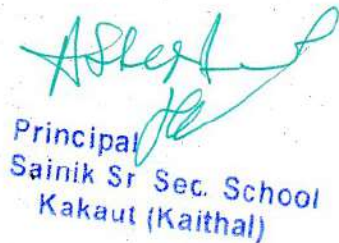 Principal
Sainik Sr Sec. School
Kakaut (Kaithal)